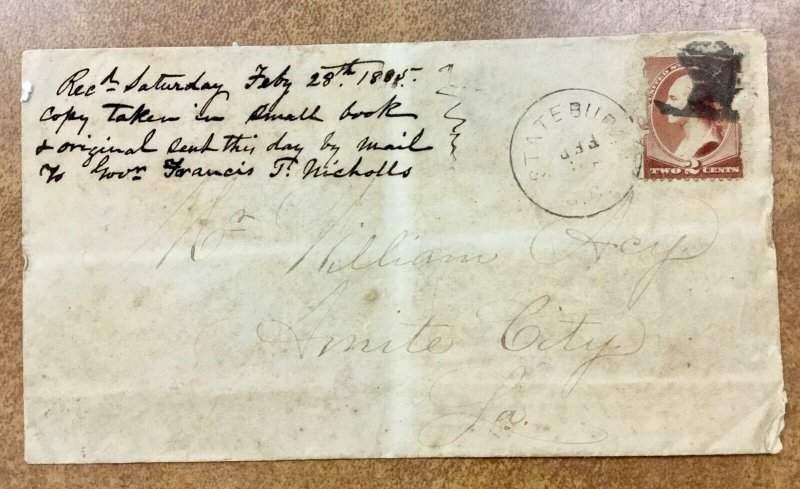 Recd Saturday Feby 28th 1885.
copy taken in small book
& original sent this day by mail
to Govr Francis T. Nicholls
STATEBUR
FEB
UNITED
TWO 2 CENTS
Mr William Acy
Amite City
La.